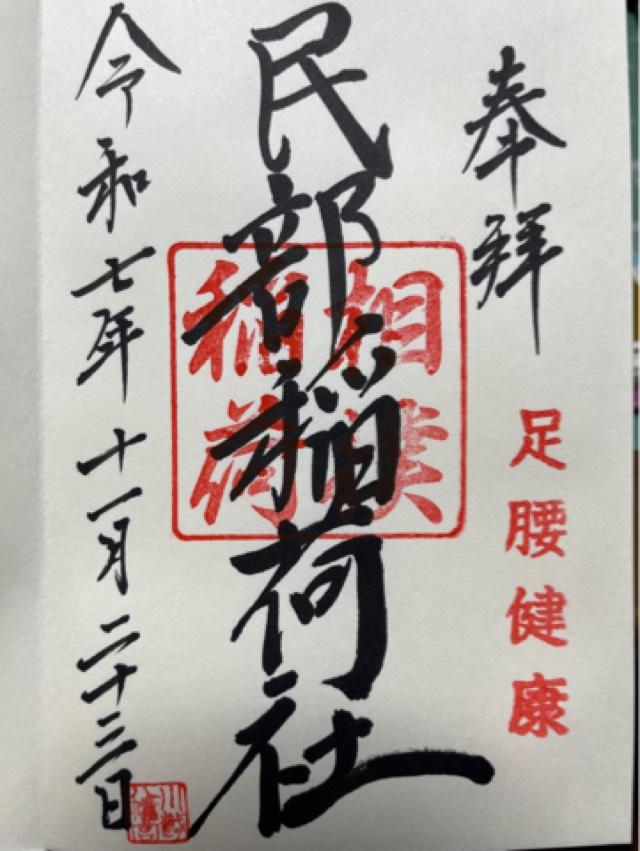 奉拝
足腰健康
民部稲荷社
相撲
稲荷
令和七年十一月二十三日